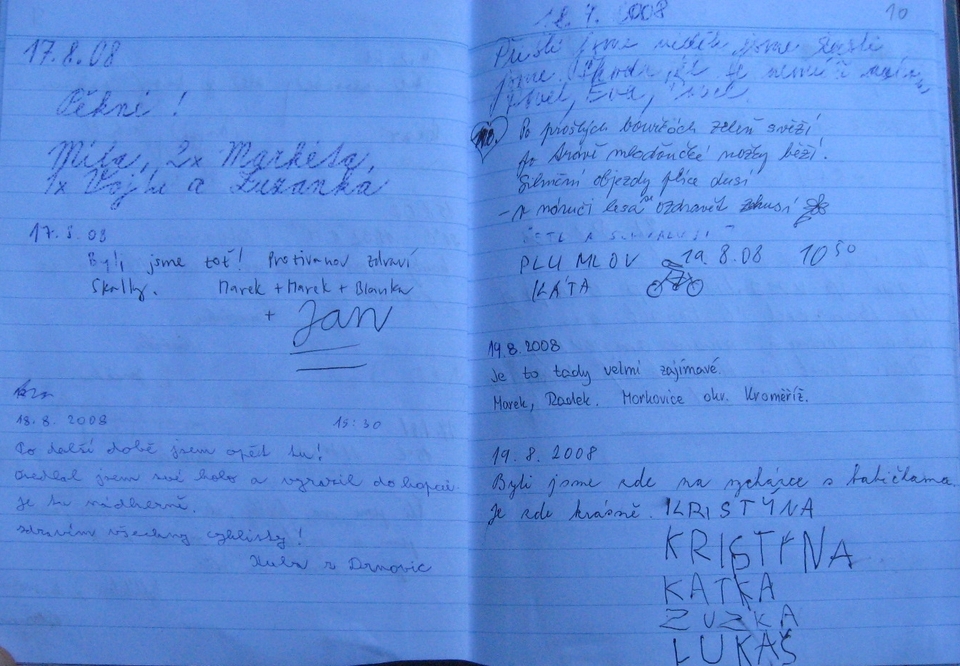 17.8.08
Pěkné!
Míla, 2x Markéta,
1x Vojta a Zuzanka
17.8.08
Byli jsme tot! Protivanov zdraví
Skalky. Marek + Marek + Blanka
+ Jan
18.8.2008 15:30
Po delší době jsem opět tu!
jsem své kolo a vyrazil do kopců
je tu nádherně.
zdravím všechny cyklisty!
Kuba z Drnovic
10
18.7.2008
Přišli jsme jsme
jsme. Škoda, že je není
Pavel, Eva,
Po prošlých bouřkách zeleň svěží
po trávě mladičké nožky běží.
Silniční objezdy plíce dusí
- v náruči lesa se ozdravět zkusí
PLUMLOV 19.8.08 10 50
KÁŤA
19.8.2008
Je to tady velmi zajímavé.
Marek, Radek. Morkovice okr. Kroměříž.
19.8.2008
Byli jsme zde na vycházce s babičkama.
Je zde krásně. KRISTÝNA
KRISTÝNA
KATKA
ZUZKA
LUKÁŠ